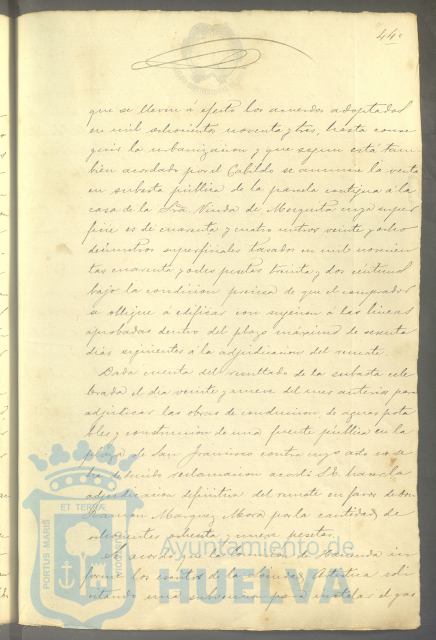 44
que se lleven á efecto los acuerdos adoptados
en mil ochocientos noventa y tres, hasta conse
guir la urbanizacion y que segun está tam
bien acordado por el Cabildo se anuncie la venta
en subasta pública de la parcela contigua á la
casa de la Sra. Viuda de Mezquita cuya super
ficie es de cuarenta y cuatro metros veinte y ocho
decímetros superficiales tasados en mil novecien
tas cuarenta y ocho pesetas treinta y dos céntimos
bajo la condicion precisa de que el comprador
se obligue á edificar con sujecion á las lineas
aprobadas dentro del plazo máximo de sesenta
dias siguientes á la adjudicacion del remate.
Dada cuenta del resultado de la subasta cele
brada el dia veinte y nueve del mes anterior para
adjudicar las obras de conduccion de aguas pota
bles y construccion de una fuente pública en la
plaza de San Francisco contra cuyo acto no se
ha deducido reclamacion acordó S.E. hacer la
adjudicacion definitiva del remate en favor de Don
Ramon Marquez Mora por la cantidad de
ochocientas ochenta y nueve pesetas.
Se acordó que la Comision de Hacienda in
forme los escritos de la Artistica soli
citando una subvencion para instalar el gas
ET TERRÆ
PORTUS MARIS
CUSTODIA
Ayuntamiento de
HUELVA